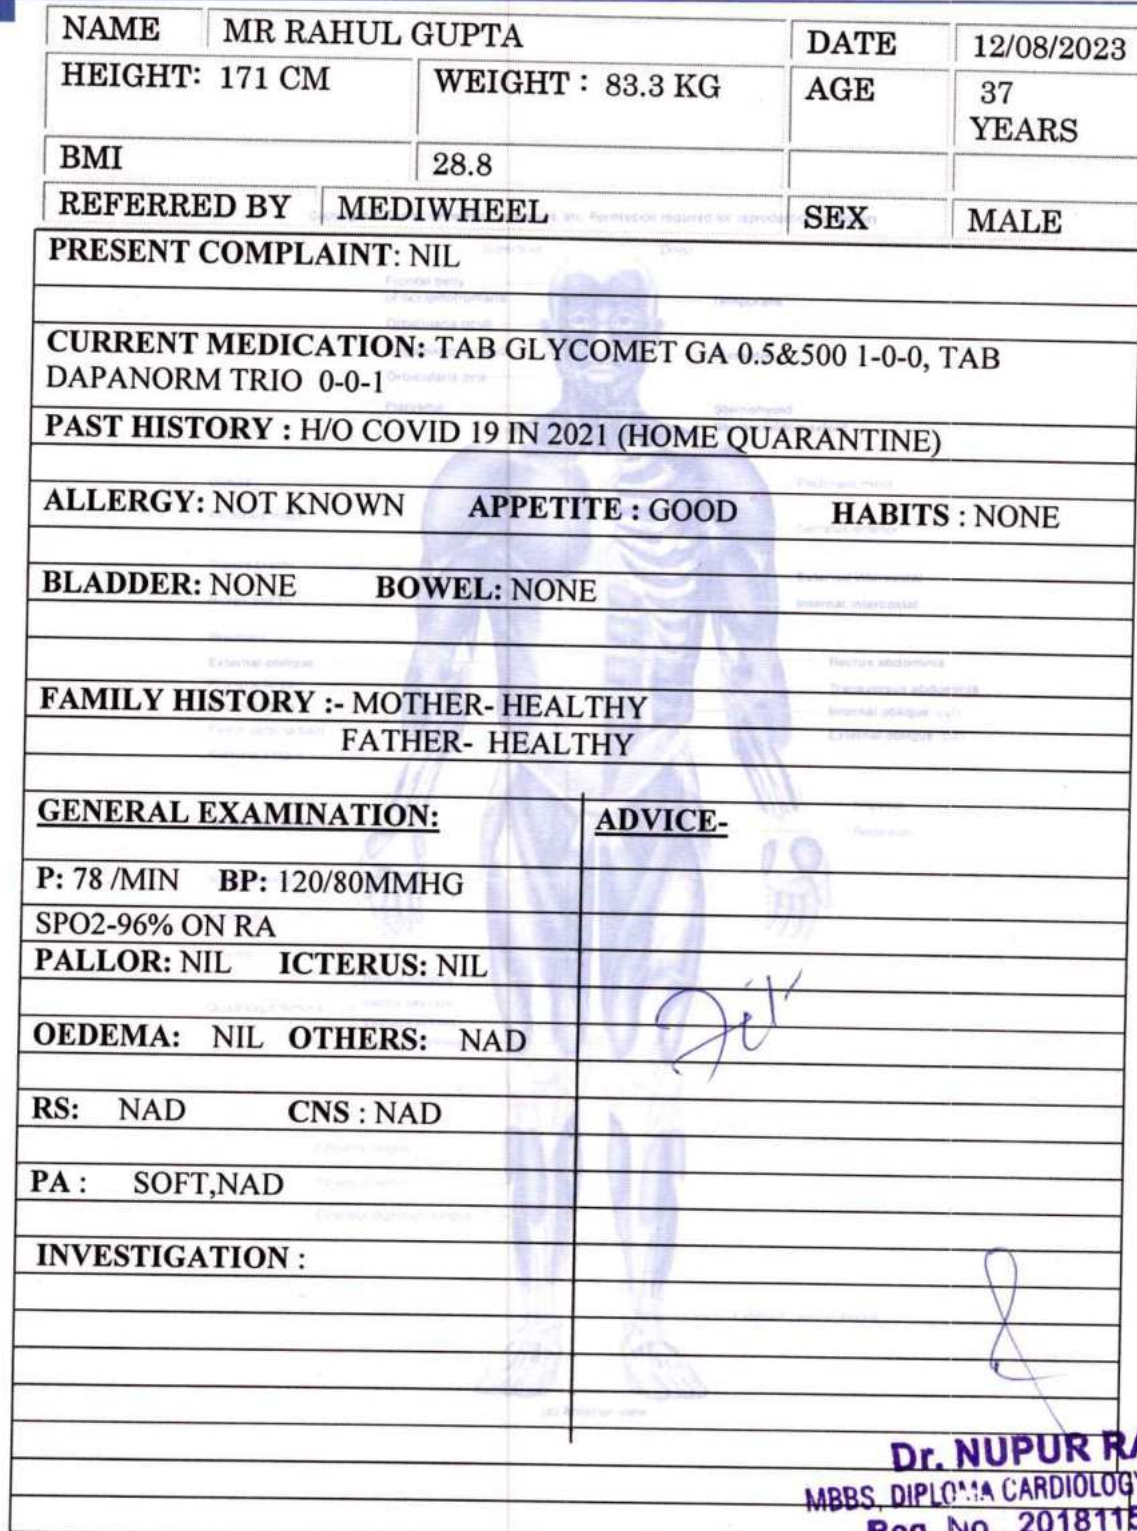 NAME MR RAHUL GUPTA DATE 12/08/2023
HEIGHT: 171 CM WEIGHT : 83.3 KG AGE 37
YEARS
BMI 28.8
REFERRED BY MEDIWHEEL SEX MALE
PRESENT COMPLAINT: NIL
CURRENT MEDICATION: TAB GLYCOMET GA 0.5&500 1-0-0, TAB
DAPANORM TRIO 0-0-1
PAST HISTORY : H/O COVID 19 IN 2021 (HOME QUARANTINE)
ALLERGY: NOT KNOWN APPETITE : GOOD HABITS : NONE
BLADDER: NONE BOWEL: NONE
FAMILY HISTORY :- MOTHER- HEALTHY
FATHER- HEALTHY
GENERAL EXAMINATION: ADVICE-
P: 78 /MIN BP: 120/80MMHG
SPO2-96% ON RA
PALLOR: NIL ICTERUS: NIL
Fit
OEDEMA: NIL OTHERS: NAD
RS: NAD CNS : NAD
PA : SOFT,NAD
INVESTIGATION :
Dr. NUPUR RA
MBBS, DIPLOMA CARDIOLOGY
Reg. No. 2018115